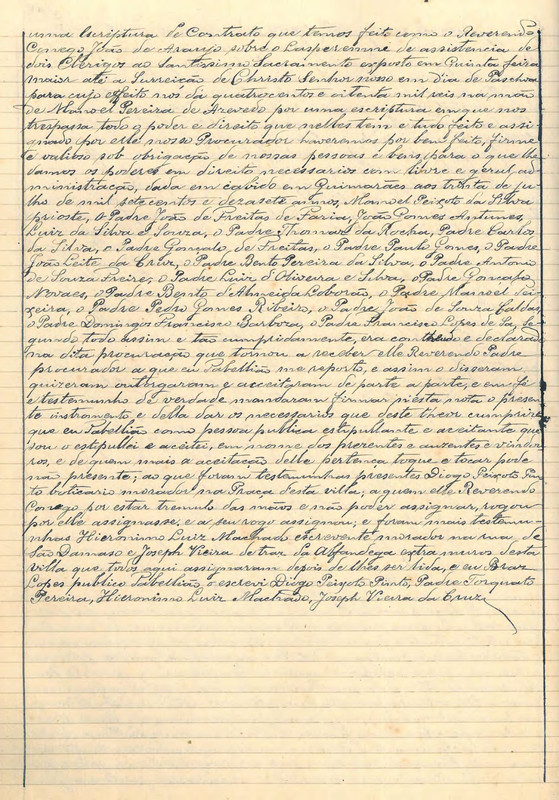 uma Escriptura de Contrato que temos feito como o Reverendo
Conego João de Araujo sobre o Lasperenne de assistencia de
dois Clerigos ao Santissimo Sacramento exposto em Quinta feira
maior até a Surreição de Christo Senhor nosso em dia de Paschoa
para cujo effeito nos dá quatrocentos e oitenta mil reis na mão
de Manoel Pereira de Azevedo por uma escriptura em que nos
trespassa todo o poder e direito que nelles tem e tudo feito e assi
gnado por elle nosso Procurador haveremos por bem feito, firme
e valioso sob obrigação de nossas pessoas e bens, para o que lhe
damos os poderes em direito necessarios com livre e geral ad
ministração, dada em cabido em Guimarães aos trinta de ju
lho de mil sete centos e dezasete annos, Manoel Peixoto da Silva
prioste, O Padre João de Freitas de Faria, João Gomes Antunes,
Luiz da Silva e Souza, o Padre Thomaz da Rocha, Padre Carlos
da Silva, o Padre Gonçalo de Freitas, o Padre Paulo Gomes, o Padre
João Leite da Cruz, o Padre Bento Pereira da Silva, o Padre Antonio
de Souza Freire, o Padre Luiz d'Oliveira e Silva, o Padre Gonçalo
Novaes, o Padre Bento d'Almeida Loborão, o Padre Manoel Tei
xeira, o Padre Pedro Gomes Ribeiro, o Padre João de Souza Caldas,
o Padre Domingos Francisco Barboza, o Padre Francisco Lopes de Sá, Se
gundo todo assim e tão cumpridamente, era contheudo e declarado
na dita procuração que tornou a receber elle Reverendo Padre
procurador a que eu Tabellião me reporto, e assim o disseram
quizeram outorgaram e acceitaram de parte a parte, e em fé
e testemunho de verdade mandaram firmar n'esta nota o presen
te instromento e d'ella dar os necessarios que deste theor cumprirem
que eu Tabellião como pessoa publica estipullante e aceitante que
sou o estipullei e aceitei, em nome dos prezentes e auzentes e vindou
ros, e de quem mais a aceitação delle pertença toque e tocar pode
não presente; ao que foram testemunhas presentes Diogo Peixoto Pin
to boticario morador na Praça desta villa; a quem elle Reverendo
Conego por estar tremulo das mãos e não poder assignar, rogou
por elle assignasse, e a seu rogo assignou; e foram mais testemu
nhas Hieronimo Luiz Machado escrevente morador na rua de
São Damaso e Joseph Vieira de traz da Alfandega extra muros desta
villa que todos aqui assignaram depois de lhes ser lida, e eu Braz
Lopes publico Tabellião o escrevi Diogo Peixoto Pinto, Padre Torquato
Pereira, Hieronimo Luiz Machado, Joseph Vieira da Cruz